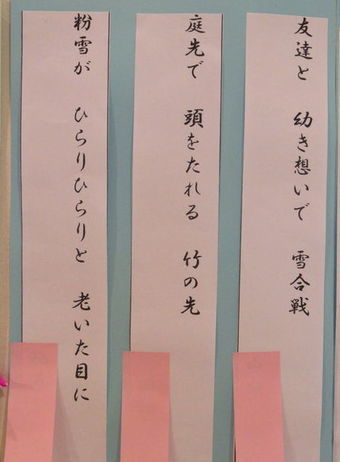 友達と 幼き想いで 雪合戦
庭先で 頭をたれる 竹の先
粉雪が ひらりひらりと 老いた目に